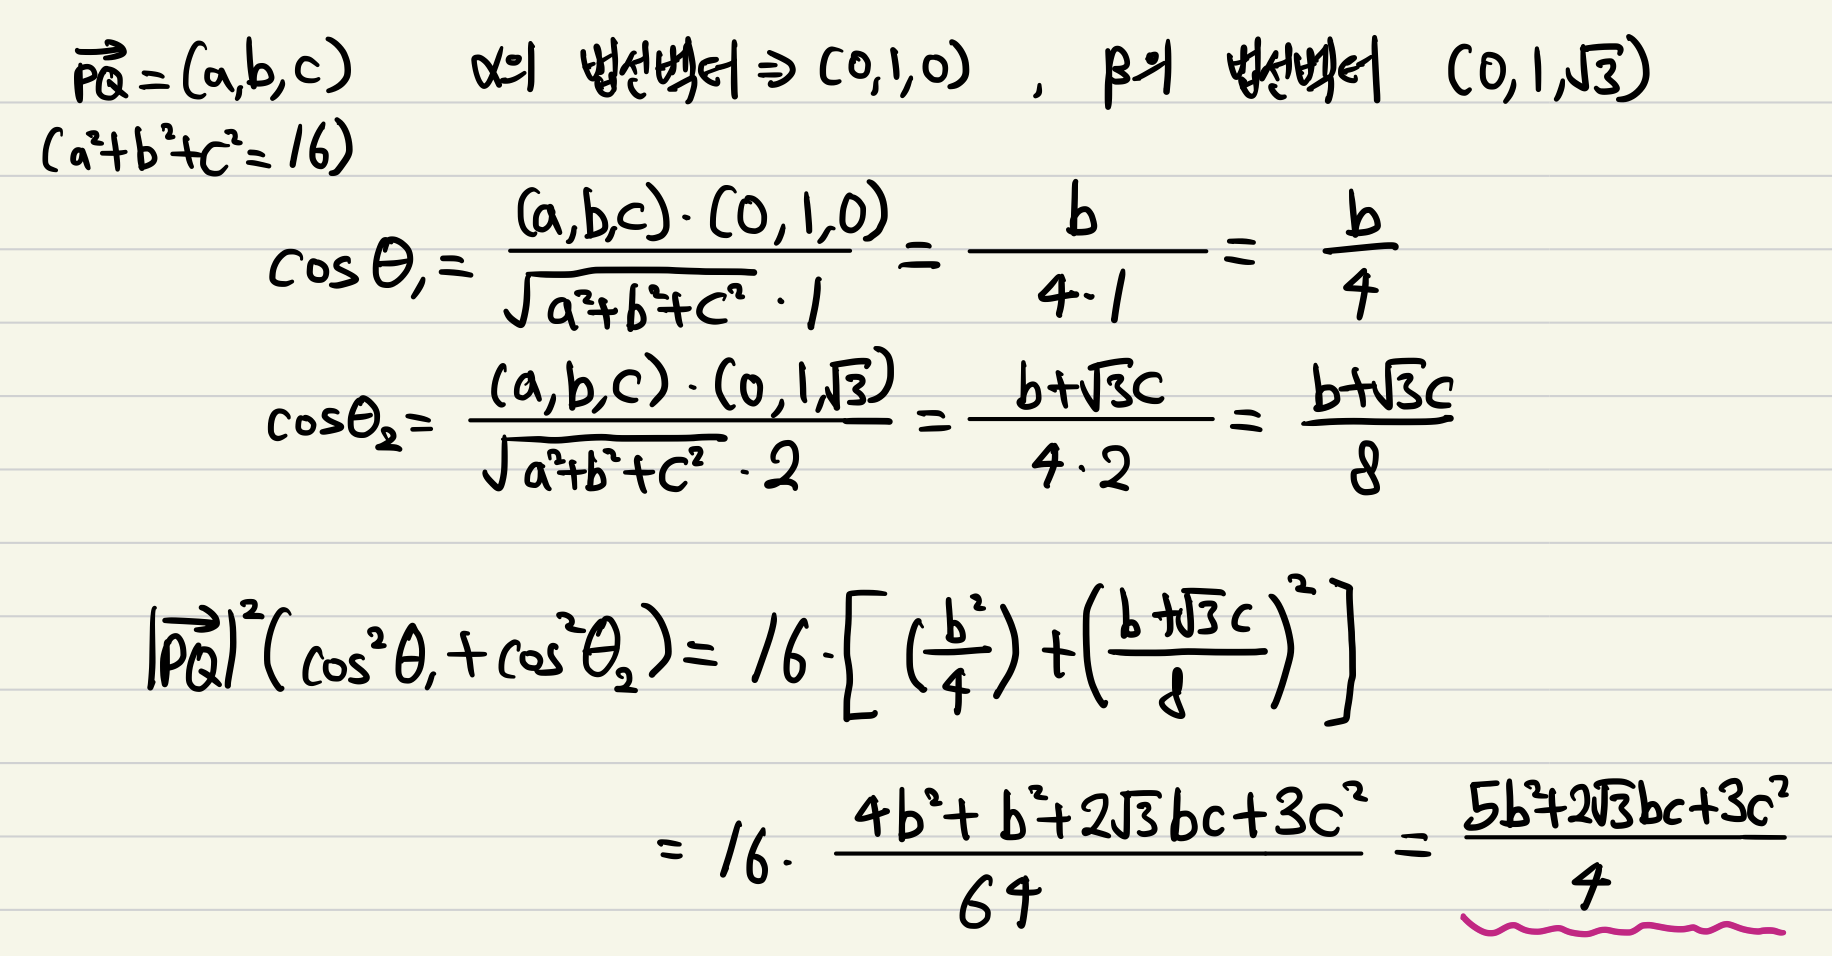 $\overrightarrow{PQ} = (a,b,c)$ α의 법선벡터 ⇒ (0,1,0) , β의 법선벡터 $(0,1,\sqrt{3})$
$(a^2+b^2+c^2=16)$
$\cos\theta_1 = \frac{(a,b,c)\cdot(0,1,0)}{\sqrt{a^2+b^2+c^2}\cdot 1} = \frac{b}{4\cdot 1} = \frac{b}{4}$
$\cos\theta_2 = \frac{(a,b,c)\cdot(0,1,\sqrt{3})}{\sqrt{a^2+b^2+c^2}\cdot 2} = \frac{b+\sqrt{3}c}{4\cdot 2} = \frac{b+\sqrt{3}c}{8}$
$|\overrightarrow{PQ}|^2(\cos^2\theta_1+\cos^2\theta_2) = 16\cdot\left[\left(\frac{b^2}{4}\right)+\left(\frac{b+\sqrt{3}c}{8}\right)^2\right]$
$= 16\cdot\frac{4b^2+b^2+2\sqrt{3}bc+3c^2}{64} = \frac{5b^2+2\sqrt{3}bc+3c^2}{4}$